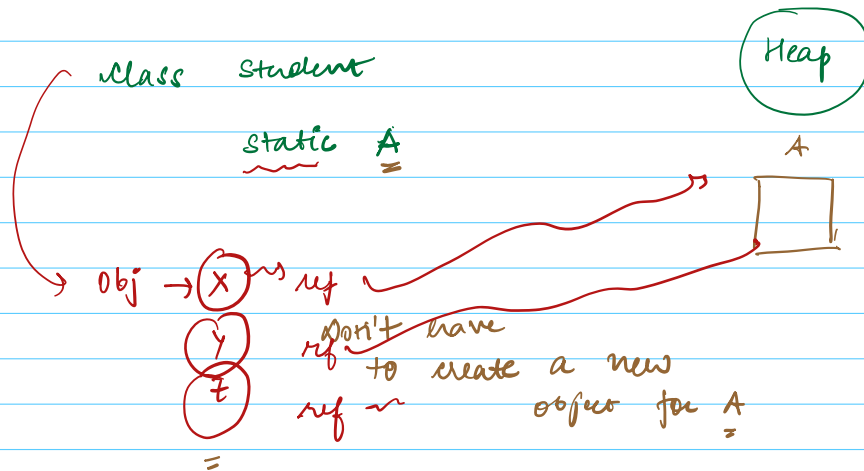 Heap
class Student
static A
A
Obj → X ref
Y ref Don't have
to create a new
Z ref object for A